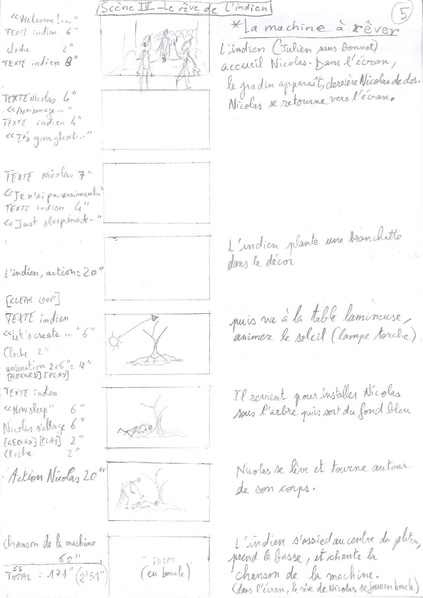 Scène IV - Le rêve de l'indien
5
* La machine à rêver
«Welcome!..."
TEXTE indien 6"
Cloche 2"
TEXTE indien 8"
L'indien (Julien sans bonnet)
accueil Nicolas. Dans l'écran,
le gradin apparaît, derrière Nicolas de dos.
Nicolas se retourne vers l'écran.
TEXTE Nicolas 4"
TEXTE indien 4"
«It's your ghost..."
TEXTE Nicolas 7"
«Je n'ai pas vraiment
TEXTE indien 4"
«Just sleep inside..."
L'indien, action = 20"
L'indien plante une branchette
dans le décor
[CLEAR LOOP]
TEXTE indien
«Let's create..." 6"
Cloche 2"
animation 2x6" = 12"
[RECORD] [PLAY]
puis va à la table lumineuse,
animer le soleil (lampe torche).
TEXTE indien
«Now sleep" 6"
Nicolas s'allonge 6"
[RECORD] [PLAY] 2"
Cloche 2"
Il revient pour installer Nicolas
sous l'arbre puis sort du fond bleu
Action Nicolas 20"
Nicolas se lève et tourne autour
de son corps.
Chanson de la machine
60"
TOTAL = 171" (2'51")
IDEM
(en boucle)
L'indien s'assied au centre du plateau,
prend la basse, et chante la
chanson de la machine.
(dans l'écran, le rêve de Nicolas se joue en boucle)